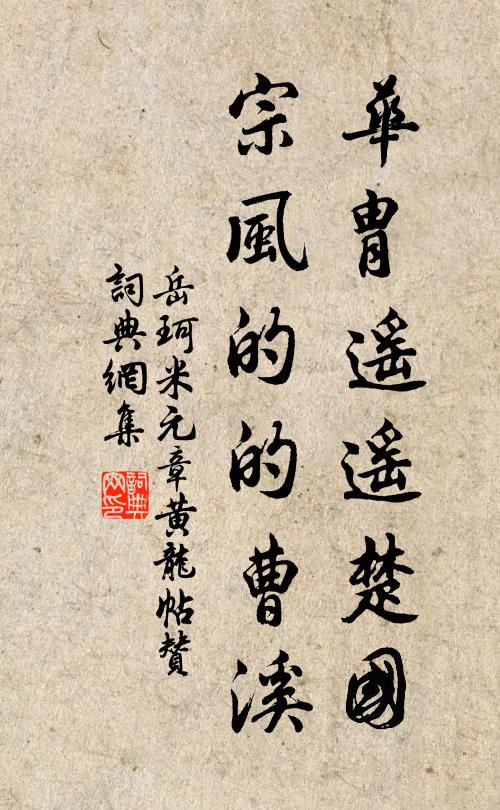 華胄遥遥楚國
宗風的的曹溪
岳珂米元章黄龍帖贊
詞典網集
詞典网印